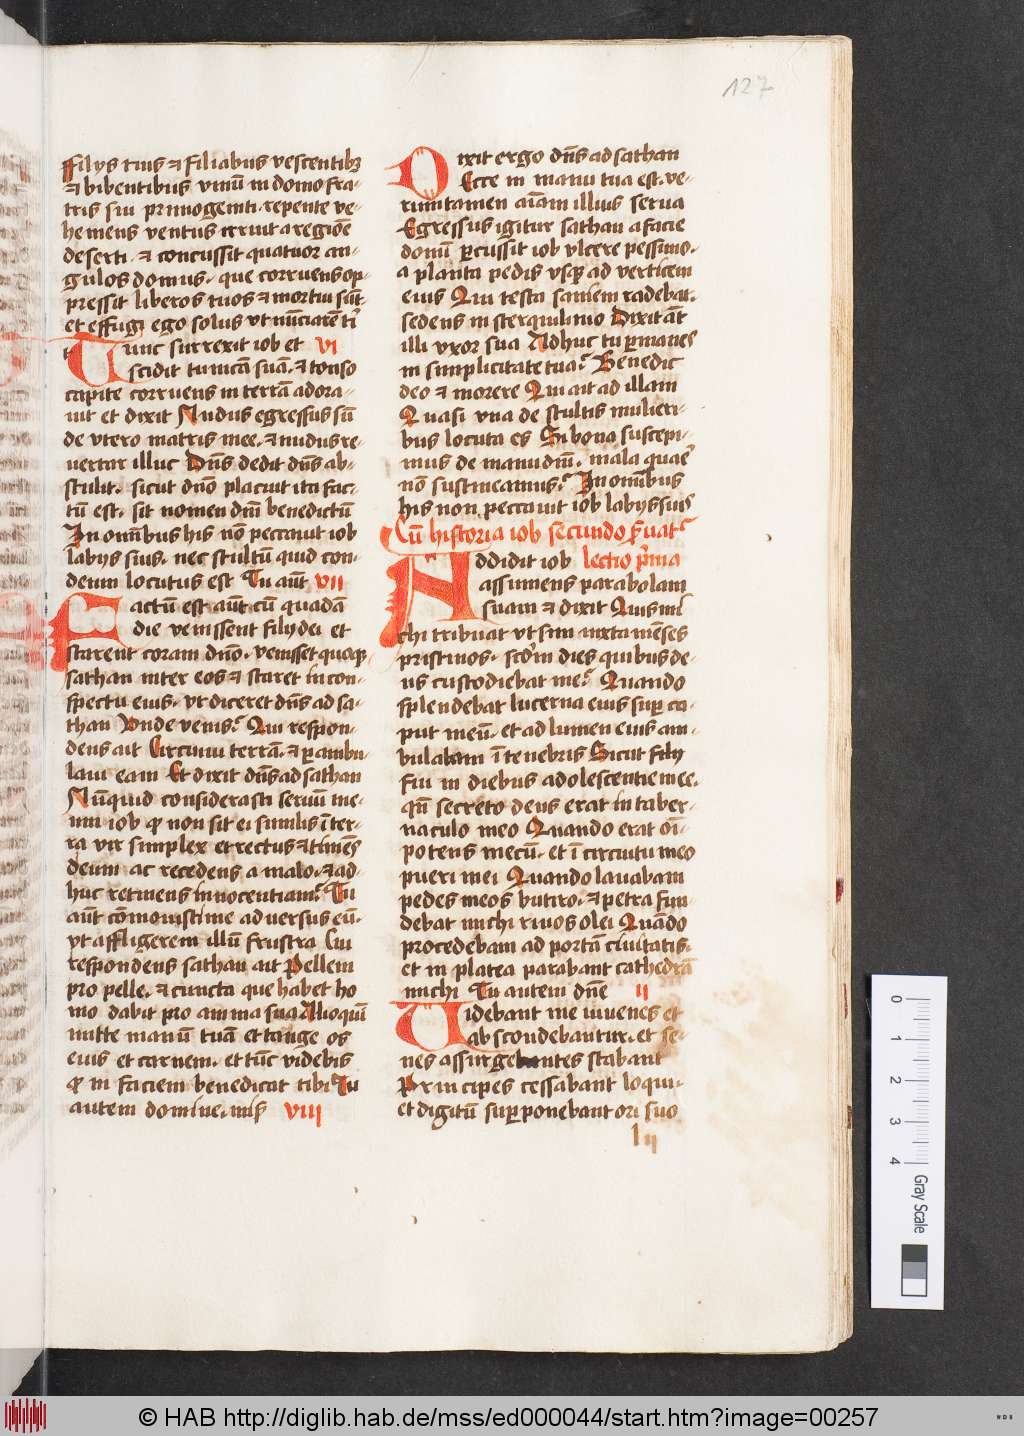 127
Filys tuis et filiabus vescentibus
et bibentibus vinū in domo fra-
tris sui primogeniti. repente ve-
hemens ventus irruit a regiōe
deserti. et concussit quatuor an-
gulos domus. que corruens op-
pressit liberos tuos et mortui sūt
et effugi ego solus vt nūciarē ti
Tunc surrexit iob et vi
scidit tunicam suā. et tonso
capite corruens in terrā adora-
uit et dixit Nudus egressus sū
de vtero matris mee. et nudus re-
uertar illuc Dn̄s dedit dn̄s ab-
stulit. sicut dn̄o placuit ita fac-
tū est. sit nomen dn̄i benedictū
In omībus his nō peccauit iob
labys suis. nec stultū quid con-
deum locutus est Tu aūt vii
Factū est aūt cū quadā
die venissent filij dei et
starent coram dn̄o. venisset quoqʒ
sathan inter eos et staret in con-
spectu eius. vt diceret dn̄s ad sa-
than Vnde venis? Qui respon-
dens ait Circuiui terrā. et ꝑambu-
laui eam Et dixit dn̄s ad sathan
Nūquid considerasti seruū me-
um iob ꝙ non sit ei similis ī ter-
ra vir simplex et rectus et timēs
deum ac recedens a malo. et ad-
huc retinens innocentiam? Tu
aūt cōmouisti me aduersus eū.
vt affligerem illū frustra Cui
respondens sathan ait Pellem
pro pelle. et cuncta que habet ho
mo dabit pro anima sua Alioquī
mitte manū tuā et tange os
eius et carnem. et tūc videbis
ꝙ in faciem benedicat tibi Tu
autem domine. mis̄ viii
Dixit ergo dn̄s ad sathan
Ecce in manu tua est. ve-
rumtamen aīam illius serua
Egressus igitur sathan a facie
domī ꝑcussit iob vlcere pessimo.
a planta pedis vsqʒ ad verticem
eius Qui testa saniem radebat.
sedens in sterquilinio Dixit āt
illi vxor sua Adhuc tu ꝑmanes
in simplicitate tua? Benedic
deo et morere Qui ait ad illam
Quasi vna de stultis mulieri-
bus locuta es Si bona suscepi-
mus de manu dn̄i. mala quare
nō sustineamus? In omībus
his non peccauit iob labys suis
Cū historia iob secundo ẜuat
Addidit iob lectio pr̄ma
assumens parabolam
suam et dixit Quis mi
chi tribuat vt sim iuxta mēses
pristinos. scd̄m dies quibus de-
us custodiebat me? Quando
splendebat lucerna eius suꝑ ca-
put meū. et ad lumen eius am-
bulabam ī tenebris Sicut filij
Fui in diebus adolescentie mee.
qn̄ secreto deus erat in taber-
naculo meo Quando erat oī-
potens mecū. et ī circuitu meo
pueri mei Quando lauabam
pedes meos butiro. et petra fun-
debat michi riuos olei Quādo
procedebam ad portā ciuitatis.
et in platea parabant cathedrā
michi Tu autem dn̄e ii
Uidebant me iuuenes et
abscondebantur. et se-
nes assurgentes stabant
Principes cessabant loqui-
et digitū suꝑponebant ori suo
l ij
0 1 2 3 4
Gray Scale
© HAB http://diglib.hab.de/mss/ed000044/start.htm?image=00257